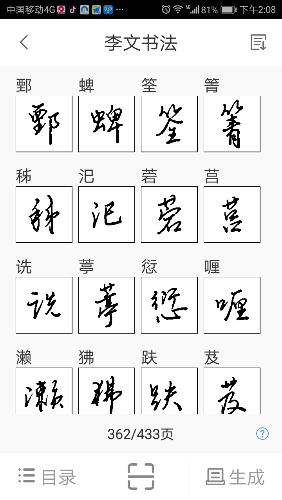 中国移动4G 81% 下午2:08
李文书法
鄄 蜱 筌 箐
鄄 蜱 筌 箐
秭 汜 菪 莒
秭 汜 菪 莒
诜 葶 愆 喱
诜 葶 愆 喱
濑 狒 趺 芨
濑 狒 趺 芨
362/433页
目录 生成